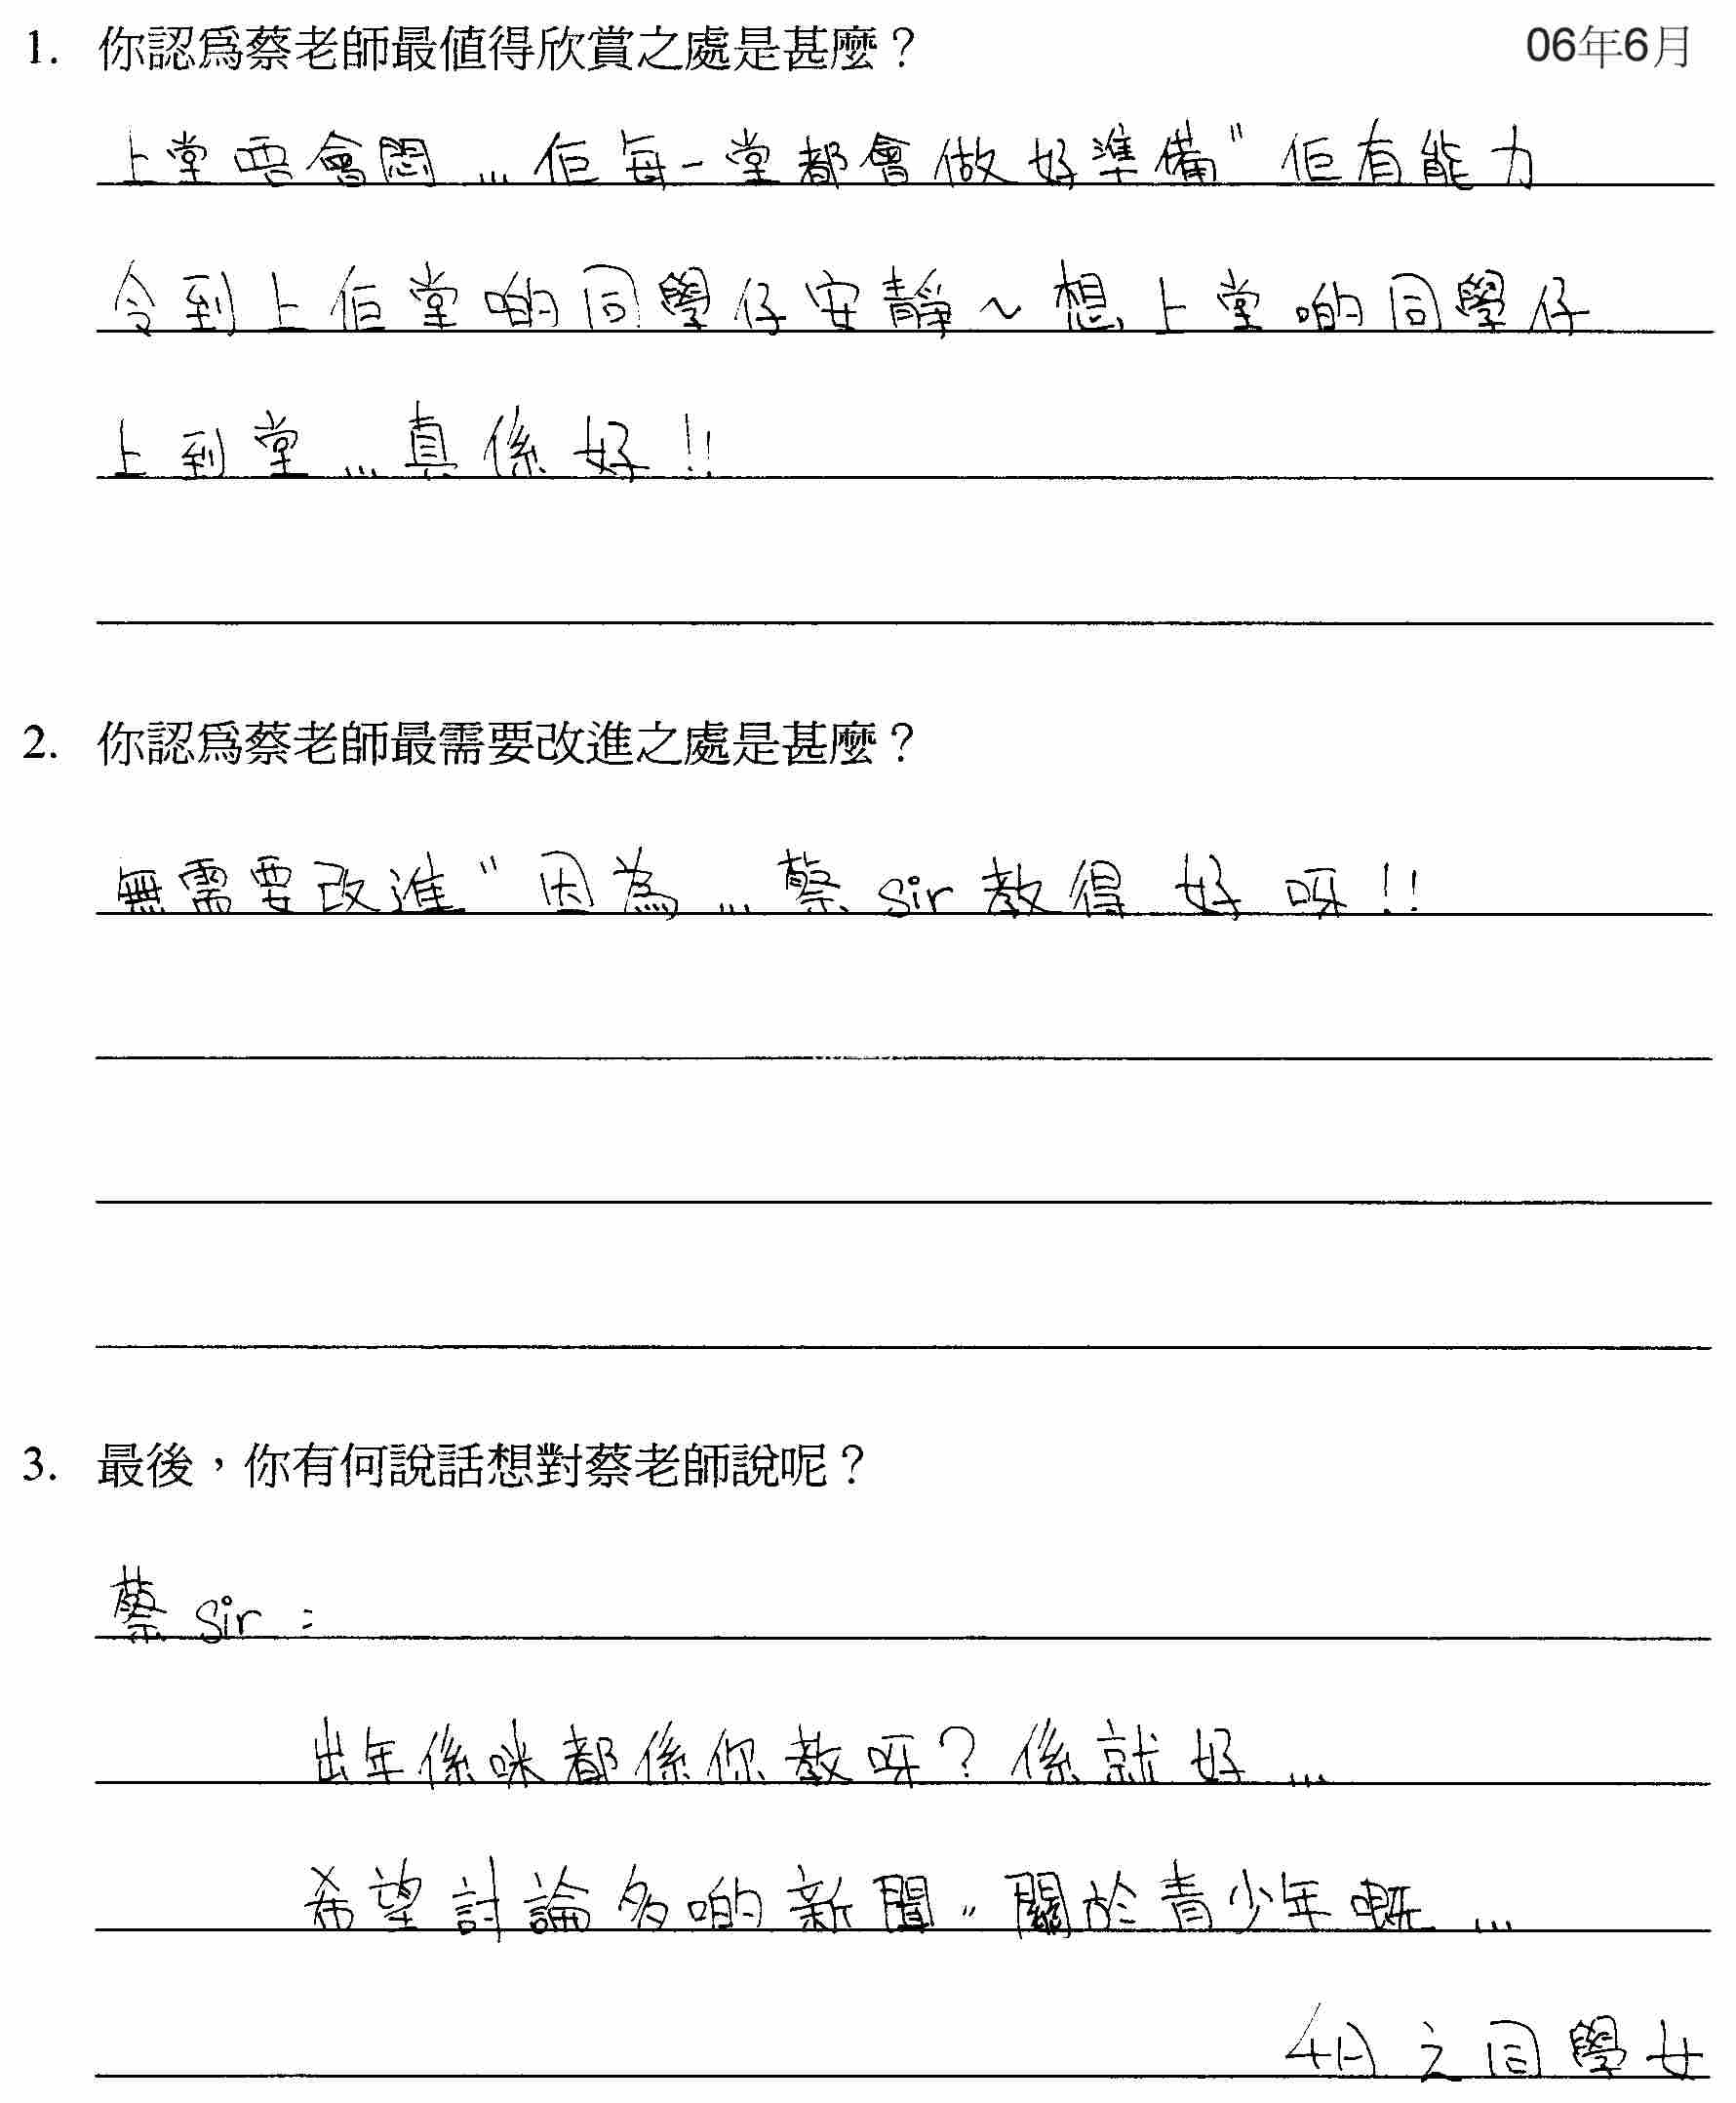 1. 你認爲蔡老師最值得欣賞之處是甚麼？ 06年6月
上堂唔會悶... 佢每一堂都會做好準備" 佢有能力
令到上佢堂啲同學仔安靜~想上堂啲同學仔
上到堂...真係好!!
2. 你認爲蔡老師最需要改進之處是甚麼？
無需要改進" 因為... 蔡 sir 教得 好 呀!!
3. 最後，你有何說話想對蔡老師說呢？
蔡 sir :
出年係咪都係你教呀? 係就好...
希望討論多啲新聞" 關於青少年嘅...
之同學女